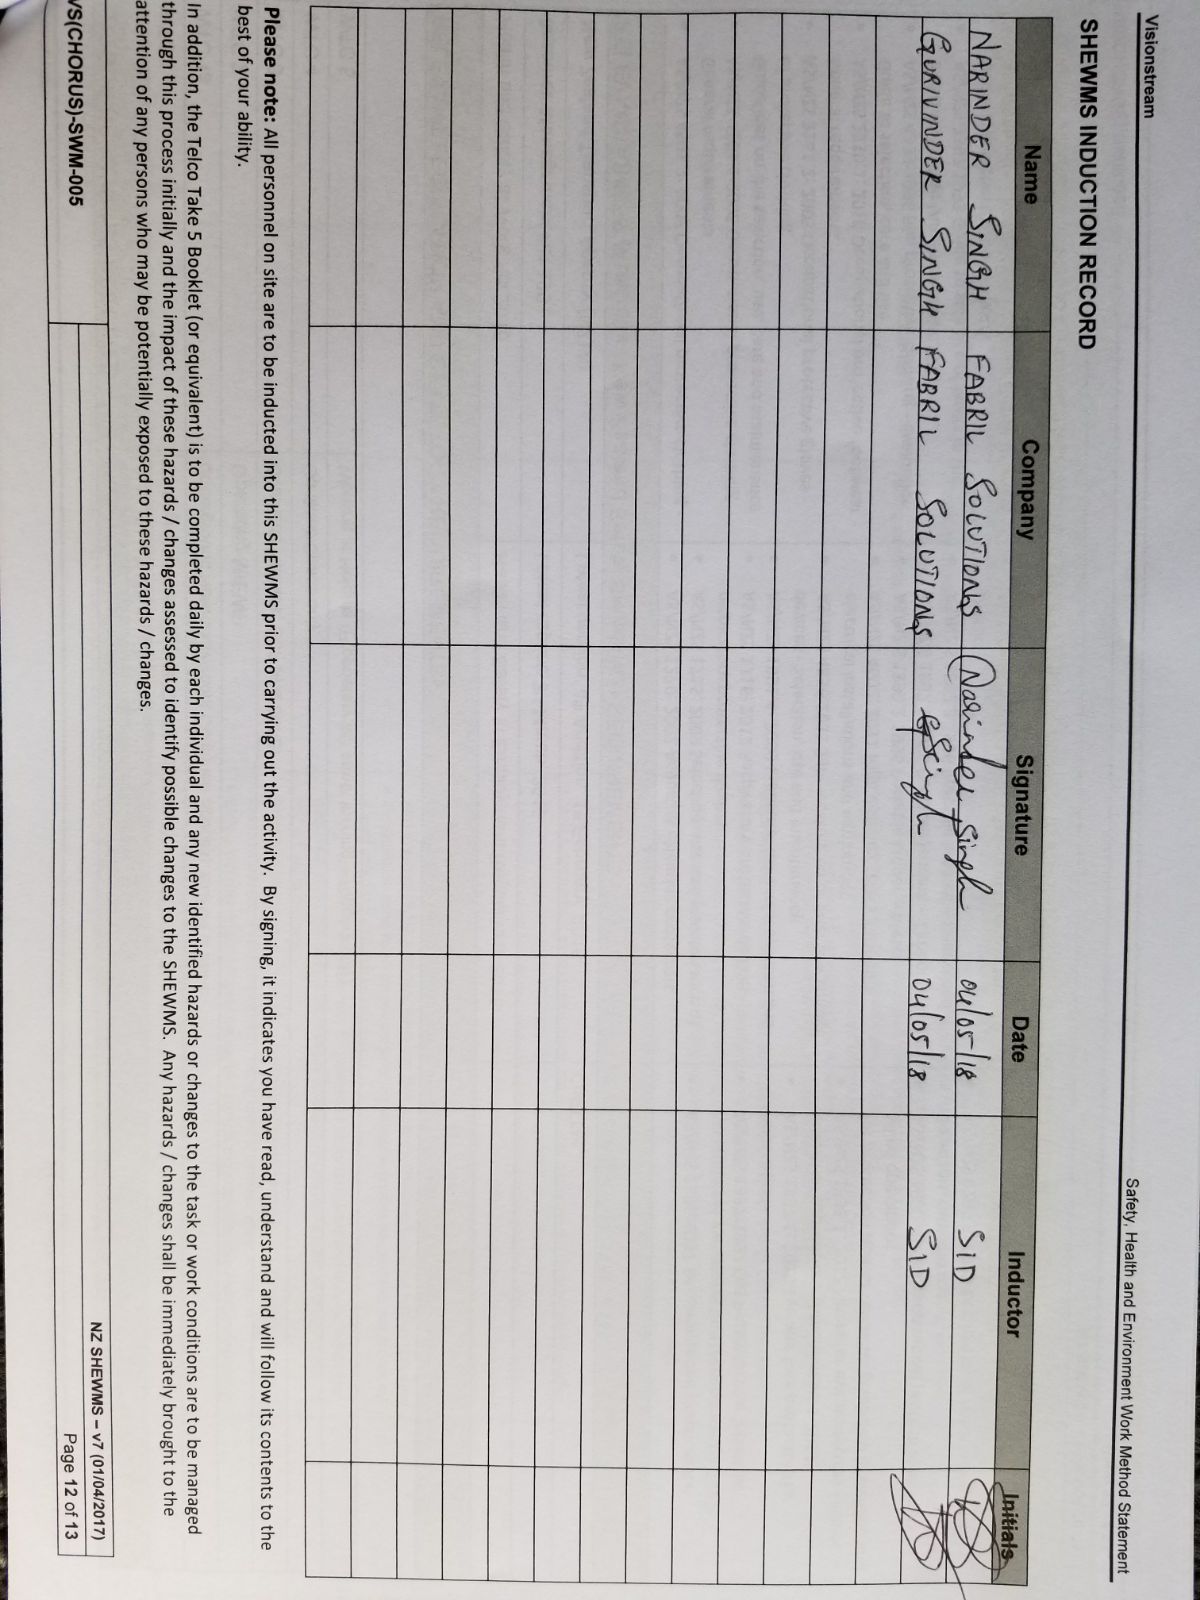 Visionstream
Safety, Health and Environment Work Method Statement
SHEWMS INDUCTION RECORD
Name Company Signature Date Inductor Initials
NARINDER SINGH FABRIL SOLUTIONS Narinder Singh 04/05/18 SID
GURIVINDER SINGH FABRIL SOLUTIONS GSingh 04/05/18 SID
Please note: All personnel on site are to be inducted into this SHEWMS prior to carrying out the activity. By signing, it indicates you have read, understand and will follow its contents to the
best of your ability.
In addition, the Telco Take 5 Booklet (or equivalent) is to be completed daily by each individual and any new identified hazards or changes to the task or work conditions are to be managed
through this process initially and the impact of these hazards / changes assessed to identify possible changes to the SHEWMS. Any hazards / changes shall be immediately brought to the
attention of any persons who may be potentially exposed to these hazards / changes.
VS(CHORUS)-SWM-005
NZ SHEWMS – v7 (01/04/2017)
Page 12 of 13